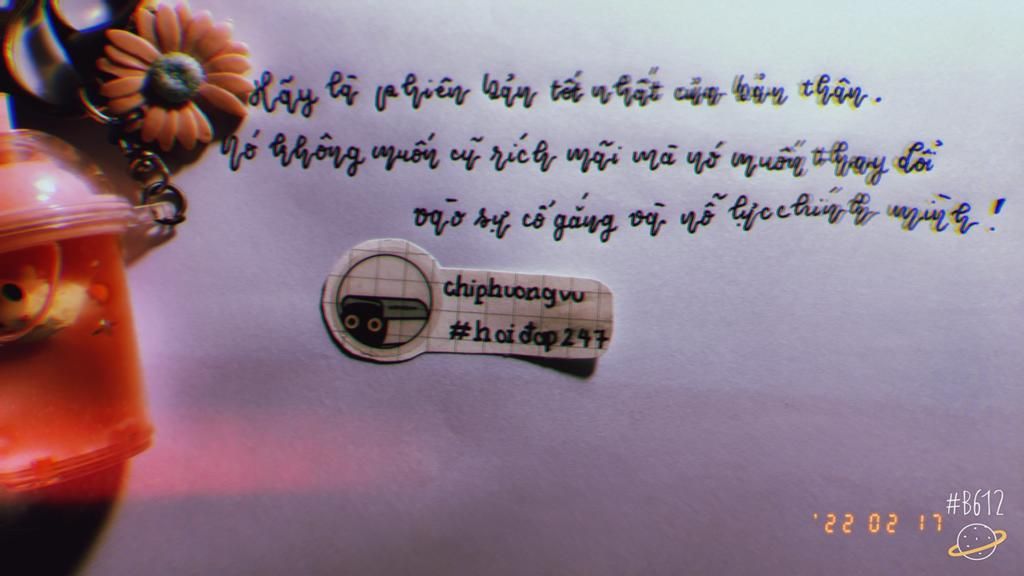 Hãy là phiên bản tốt nhất của bản thân.
Nó không muốn cũ rích mãi mà nó muốn thay đổi
vào sự cố gắng và nỗ lực chính mình!
chiphuongvu
#hoidap247
#B612
'22 02 17